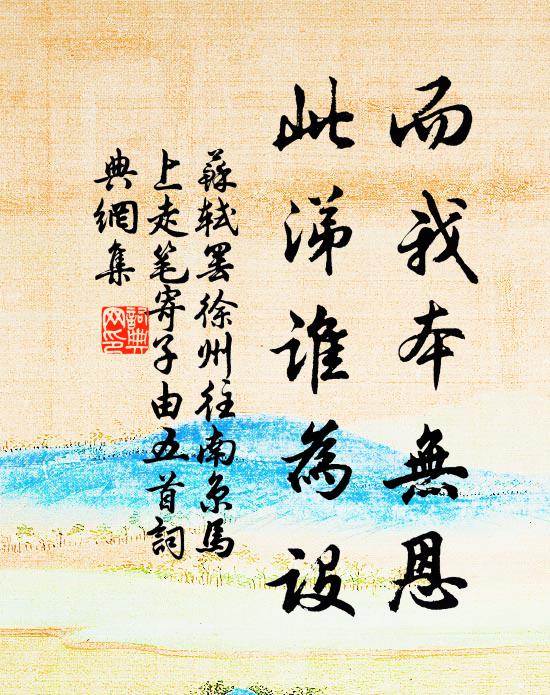 而我本無恩
此涕誰為設
蘇軾罢徐州往南京馬
上走笔寄子由五首詞
典網集
詞典
网印